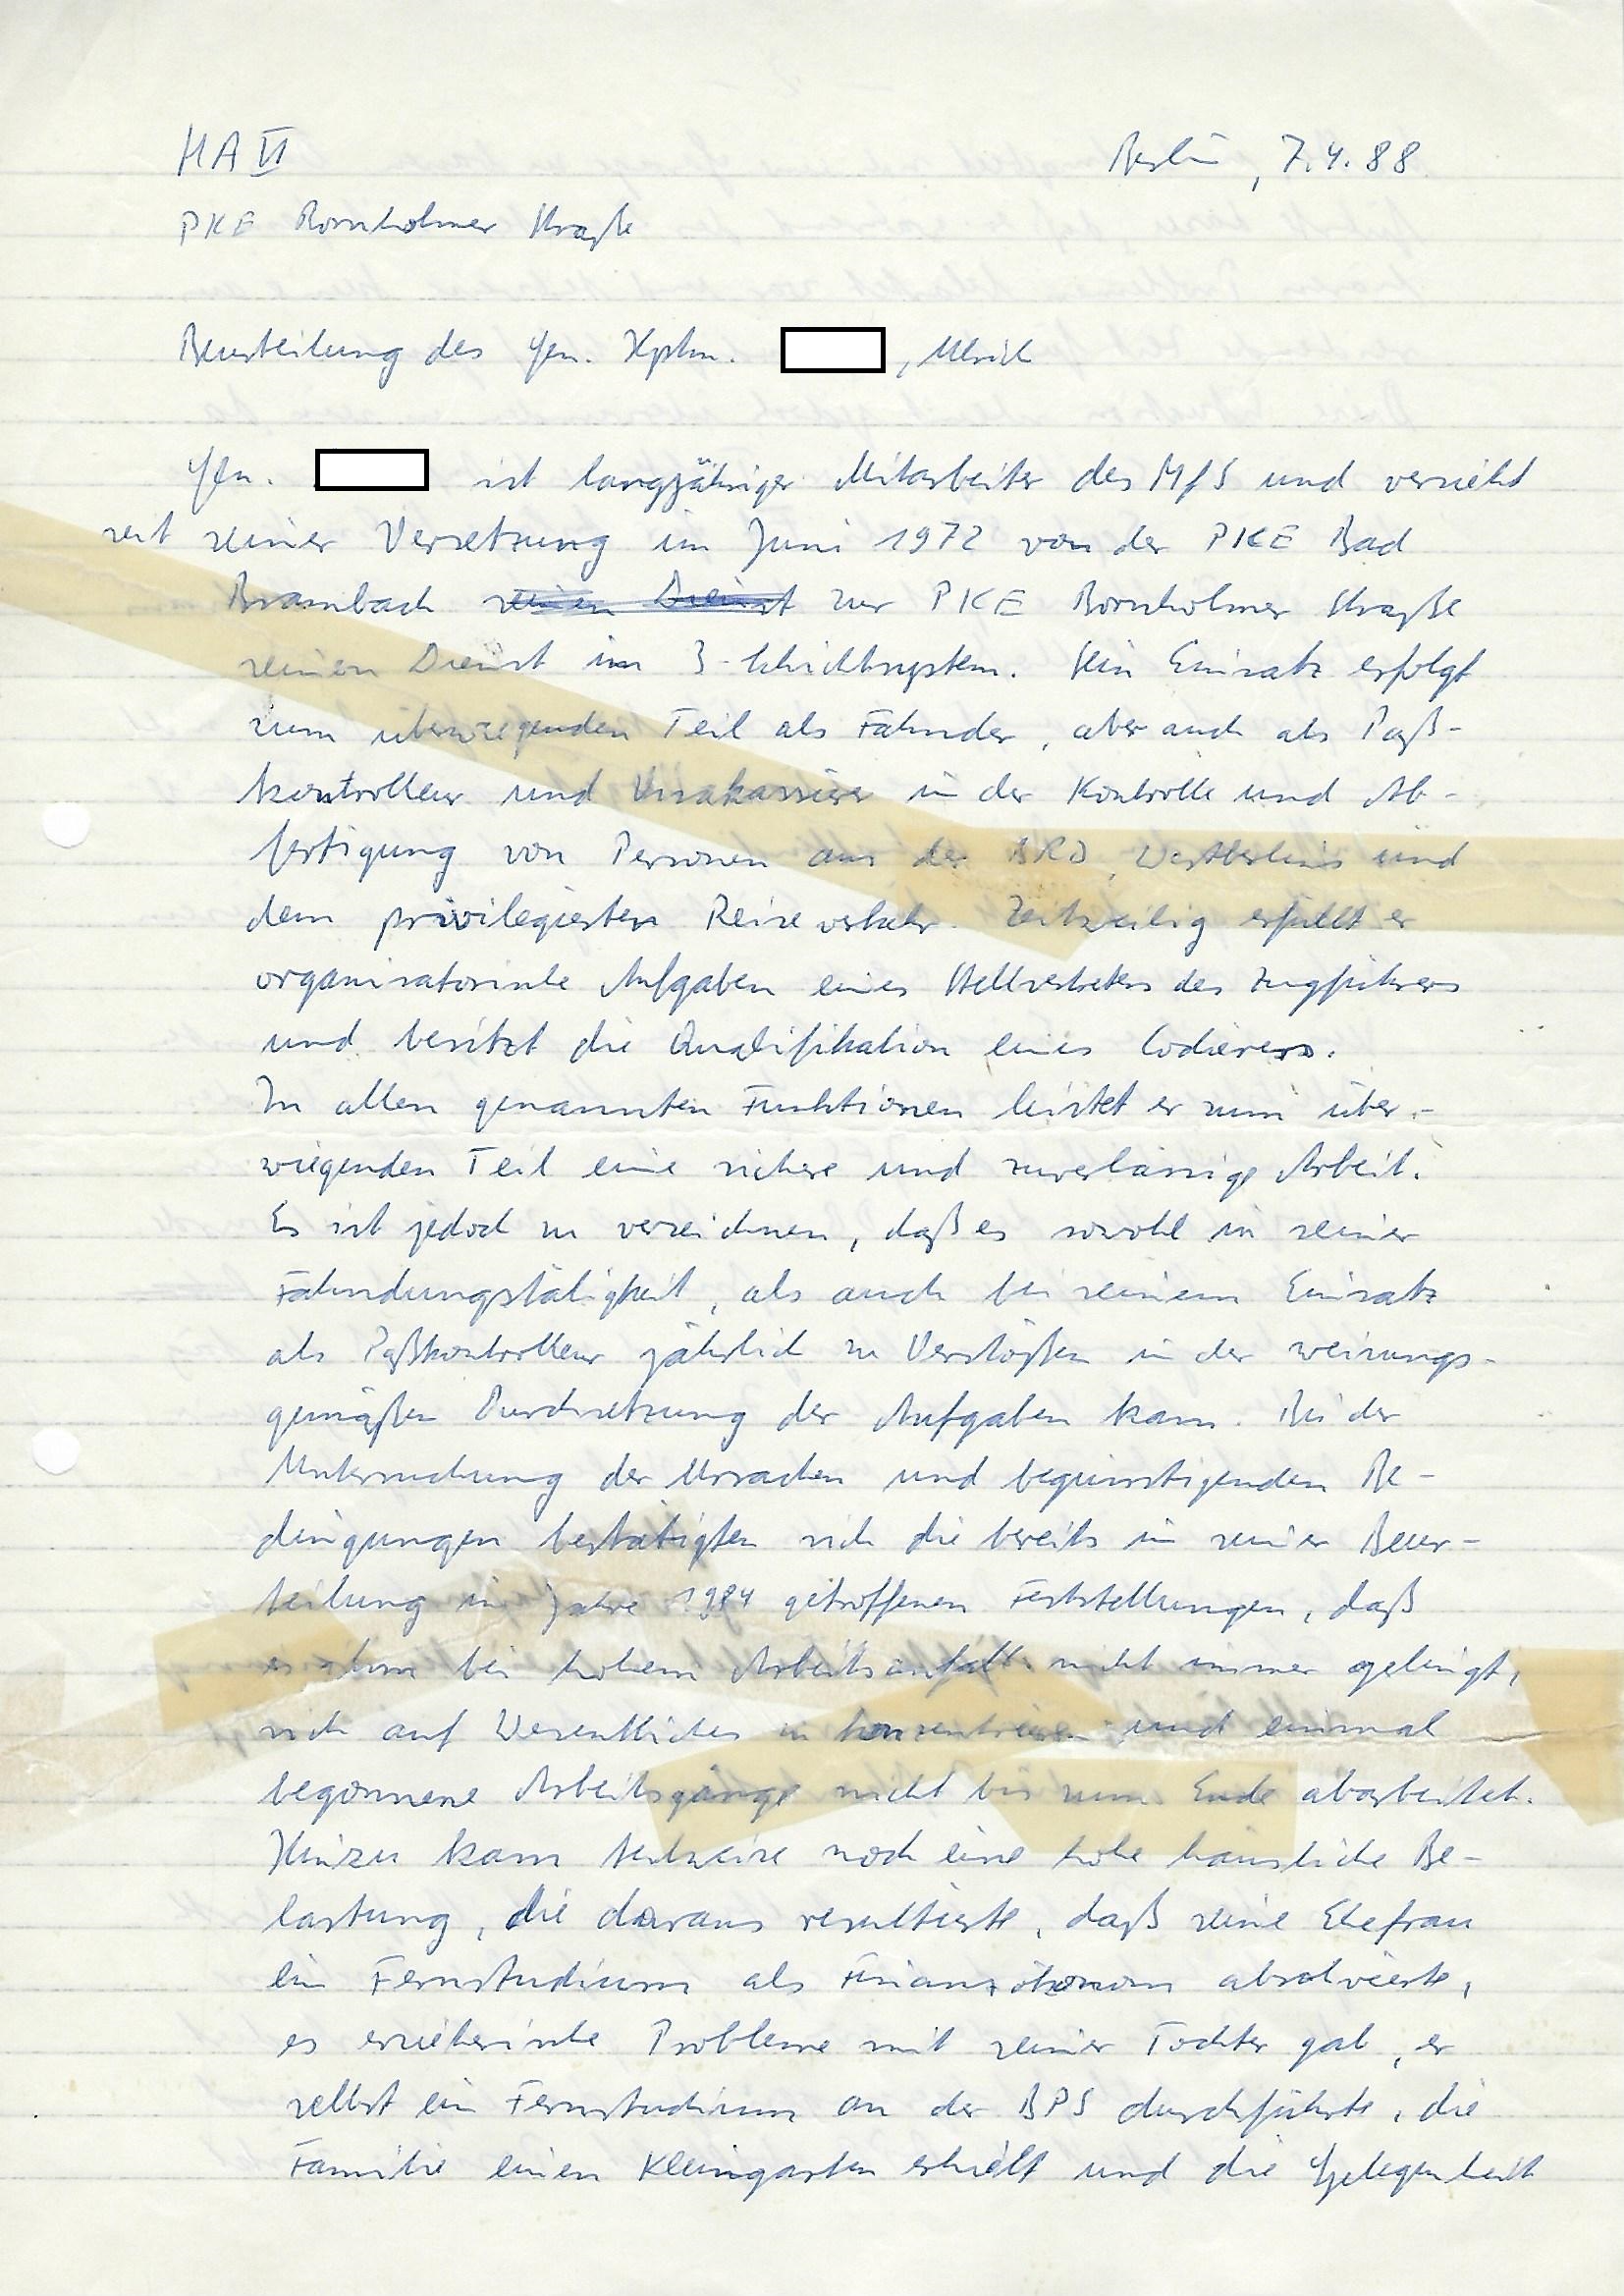 HA VI Berlin, 7.4.88
PKE Bornholmer Straße
Beurteilung des Gen. Hptm. , Ulrich
Gen. ist langjähriger Mitarbeiter des MfS und versieht
seit seiner Versetzung im Juni 1972 von der PKE Bad
Brambach seinen Dienst zur PKE Bornholmer Straße
seinen Dienst im 3-Schichtsystem. Sein Einsatz erfolgt
zum überwiegenden Teil als Fahnder, aber auch als Paß-
kontrolleur und Visakassierer in der Kontrolle und Ab-
fertigung von Personen aus der BRD, Westberlins und
dem privilegierten Reiseverkehr. Zeitweilig erfüllt er
organisatorische Aufgaben eines Stellvertreters des Zugführers
und besitzt die Qualifikation eines Codierers.
In allen genannten Funktionen leistet er zum über-
wiegenden Teil eine sichere und zuverlässige Arbeit.
Es ist jedoch zu verzeichnen, daß es sowohl in seiner
Fahndungstätigkeit, als auch bei seinem Einsatz
als Paßkontrolleur jährlich zu Verstößen in der weisungs-
gemäßen Durchsetzung der Aufgaben kam. Bei der
Untersuchung der Ursachen und begünstigenden Be-
dingungen bestätigten sich die bereits in seiner Beur-
teilung im Jahre 1984 getroffenen Feststellungen, daß
es ihm bei hohem Arbeitsanfall nicht immer gelingt,
sich auf Wesentliches zu konzentrieren und einmal
begonnene Arbeitsgänge nicht bis zum Ende abarbeitet.
Hinzu kam teilweise noch eine hohe häusliche Be-
lastung, die daraus resultierte, daß seine Ehefrau
ein Fernstudium als Finanzökonom absolvierte,
es erzieherische Probleme mit seiner Tochter gab, er
selbst ein Fernstudium an der BPS durchführte, die
Familie einen Kleingarten erhielt und die Gelegenheit